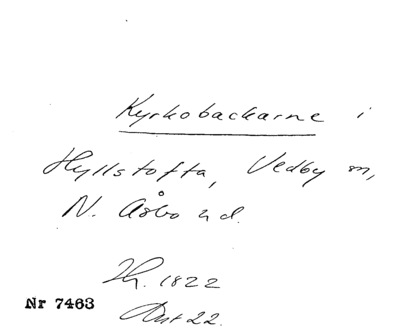 Kyrkobackarne i
Hyllstofta, Vedby sn,
N. Åsbo hd.
1822
Nr 7463
22.